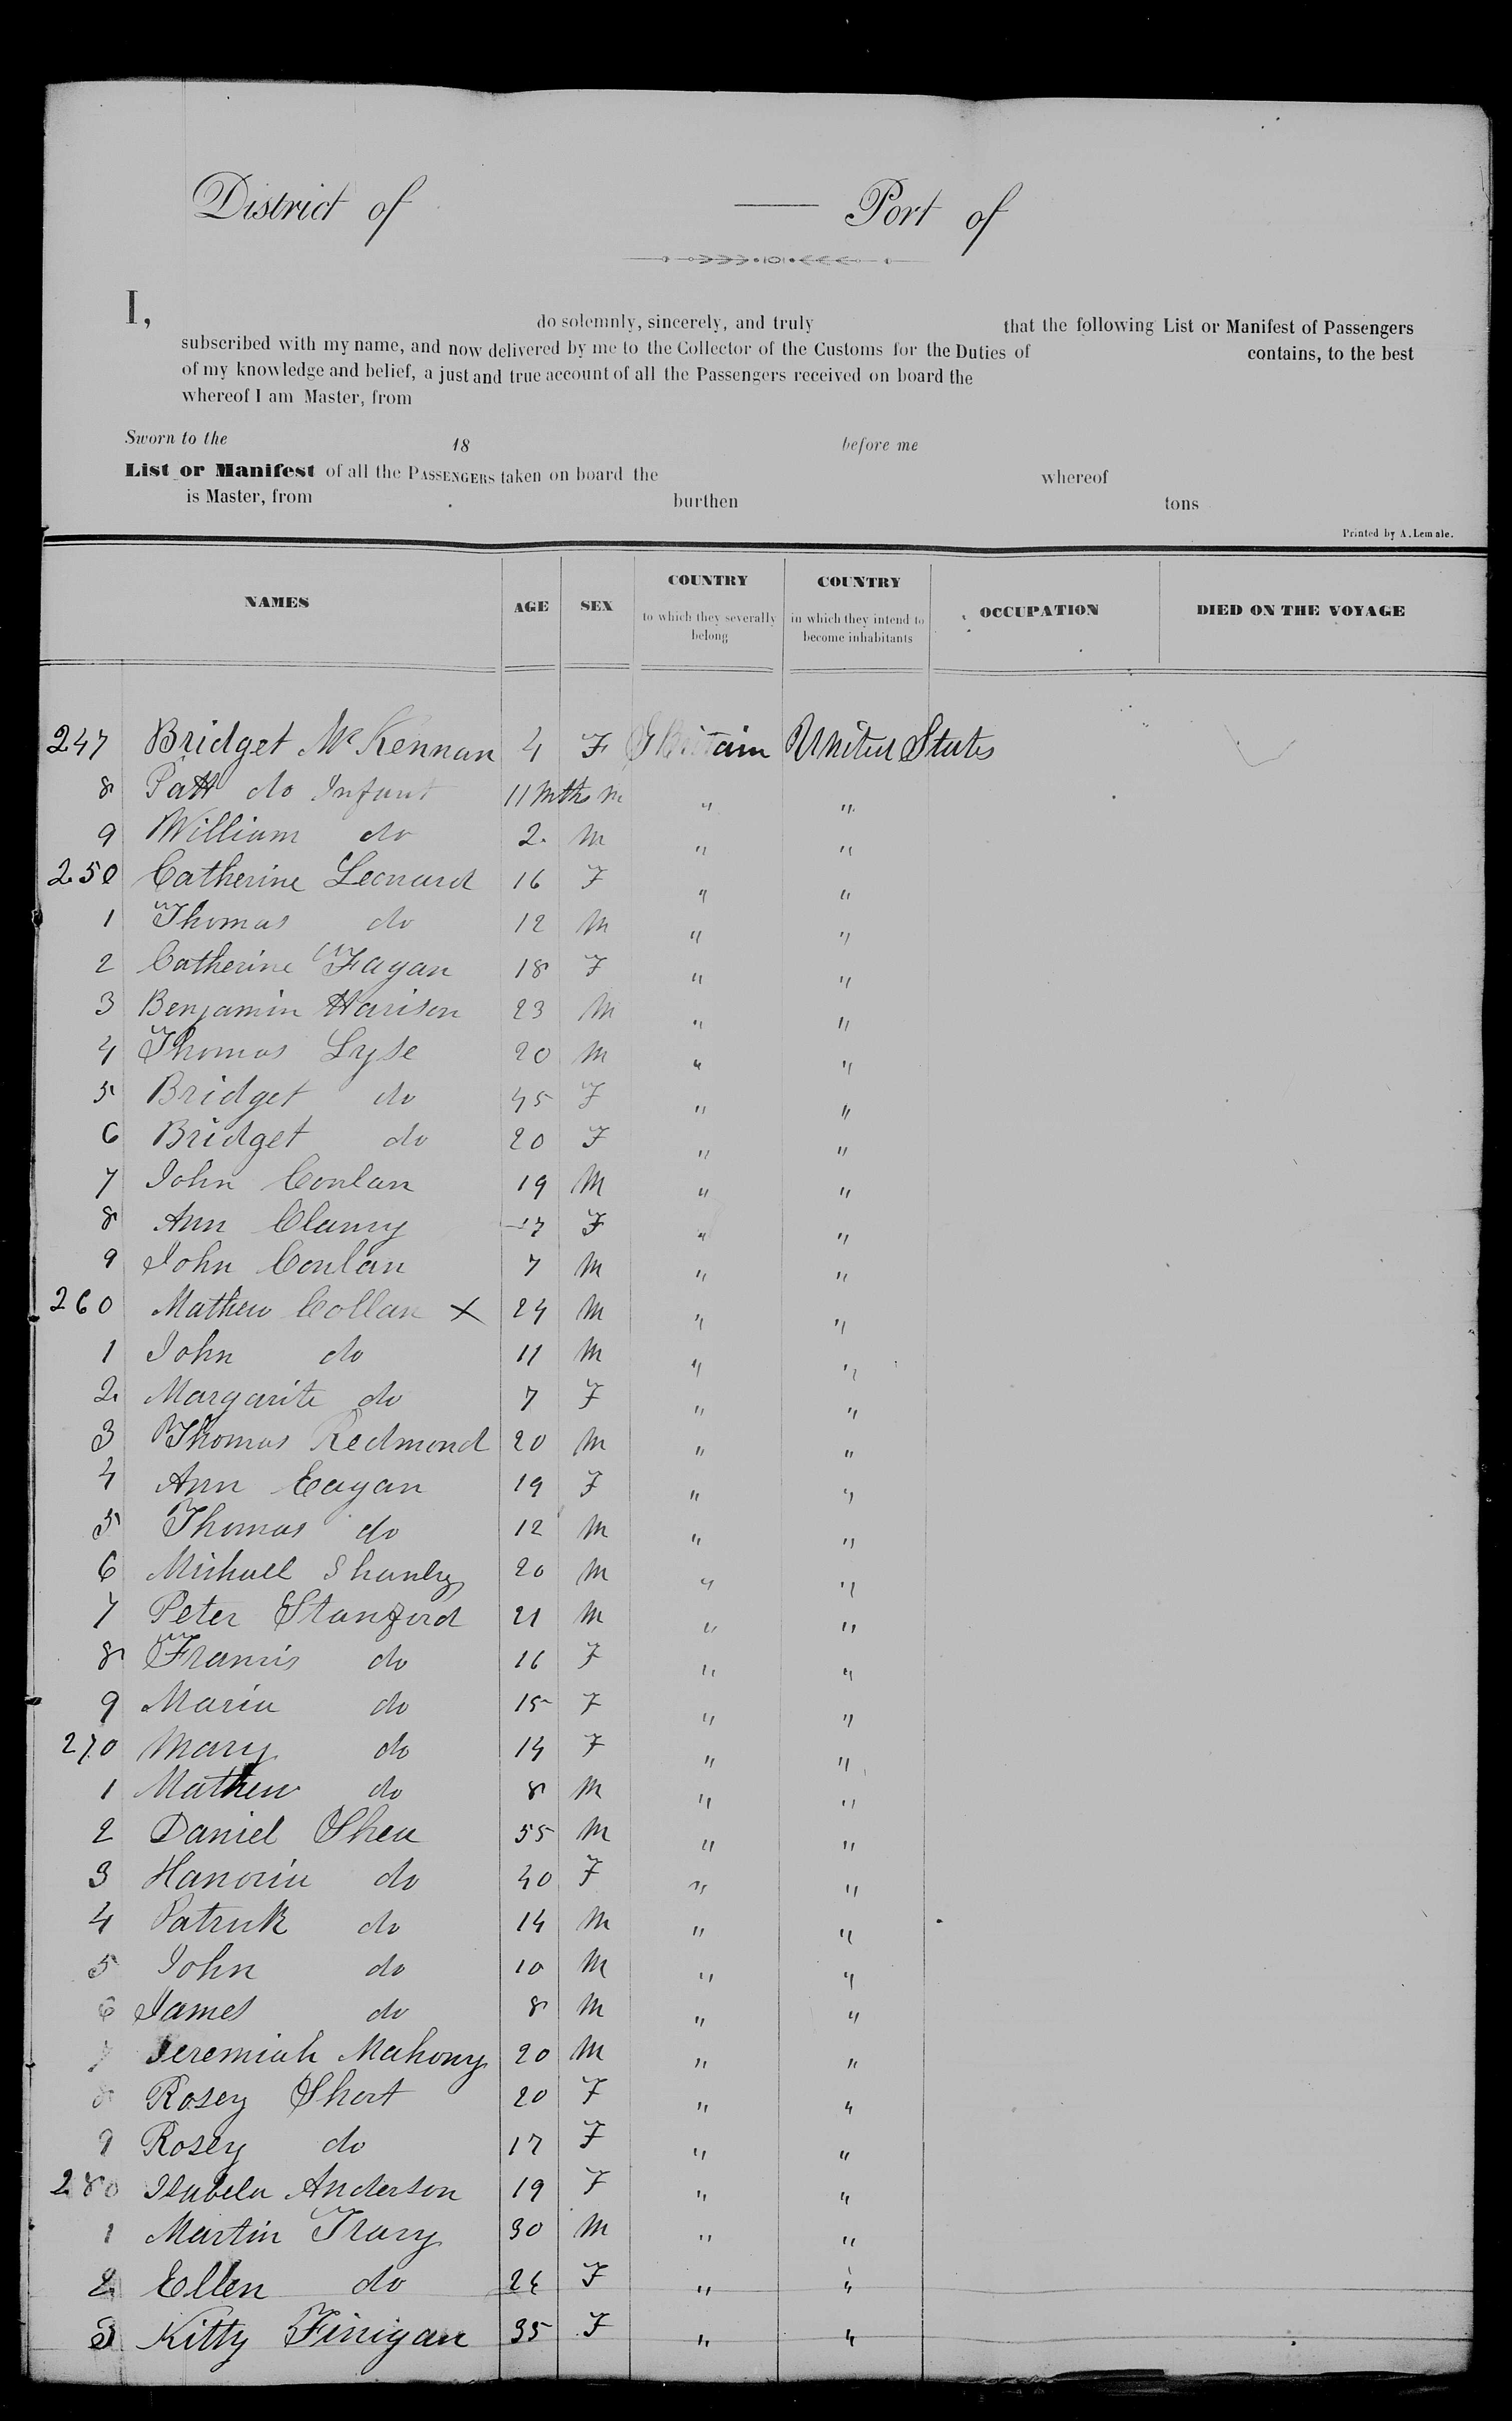 District of — Port of
I, do solemnly, sincerely, and truly that the following List or Manifest of Passengers
subscribed with my name, and now delivered by me to the Collector of the Customs for the Duties of contains, to the best
of my knowledge and belief, a just and true account of all the Passengers received on board the
whereof I am Master, from
Sworn to the 18 before me
List or Manifest of all the PASSENGERS taken on board the whereof
is Master, from burthen tons
Printed by A. Lemale.
NAMES AGE SEX COUNTRY to which they severally belong COUNTRY in which they intend to become inhabitants OCCUPATION DIED ON THE VOYAGE
247 Bridget McKennan 4 F G Britain United States
8 Patt do Infant 11 mths m " "
9 William do 2 m " "
250 Catherine Leonard 16 F " "
1 Thomas do 12 m " "
2 Catherine Fagan 18 F " "
3 Benjamin Harison 23 m " "
4 Thomas Lyse 20 m " "
5 Bridget do 45 F " "
6 Bridget do 20 F " "
7 John Conlan 19 m " "
8 Ann Clancy 17 F " "
9 John Conlan 7 m " "
260 Mathew Collan x 24 m " "
1 John do 11 m " "
2 Margarite do 7 F " "
3 Thomas Redmond 20 m " "
4 Ann Eagan 19 F " "
5 Thomas do 12 m " "
6 Michael Shanly 20 m " "
7 Peter Stanford 21 m " "
8 Francis do 16 F " "
9 Maria do 15 F " "
270 Mary do 14 F " "
1 Mathew do 8 m " "
2 Daniel Shea 55 m " "
3 Hanoria do 40 F " "
4 Patrick do 14 m " "
5 John do 10 m " "
6 James do 8 m " "
7 Jeremiah Mahony 20 m " "
8 Rosey Short 20 F " "
9 Rosey do 17 F " "
280 Isabela Anderson 19 F " "
1 Martin Tracy 30 m " "
2 Ellen do 24 F " "
3 Kitty Finigan 35 F " "